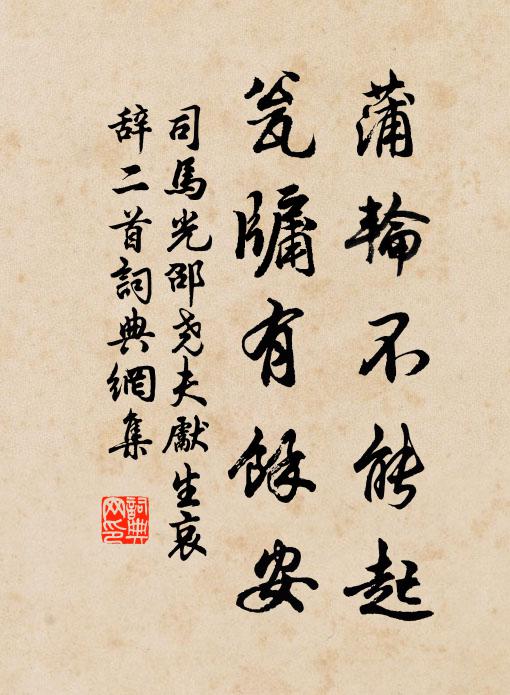 蒲輪不能起
瓮牖有餘安
司馬光邵尧夫獻生哀
辞二首詞典網集
詞典网印